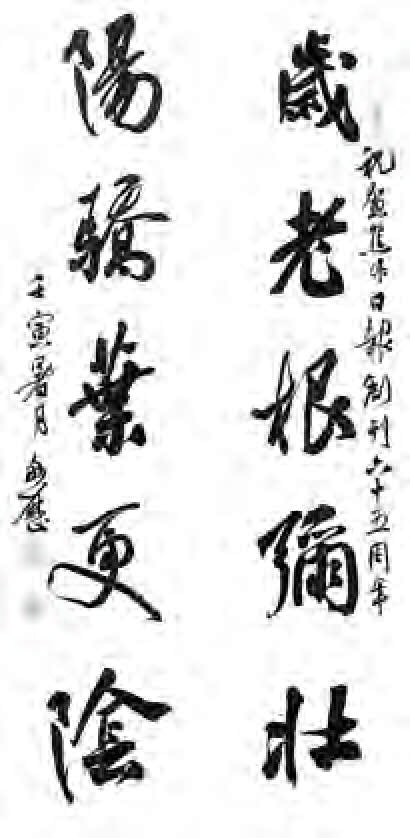 祝賀焦作日報創刊六十五周年
歲老根彌壯
陽驕葉更陰
壬寅暑月